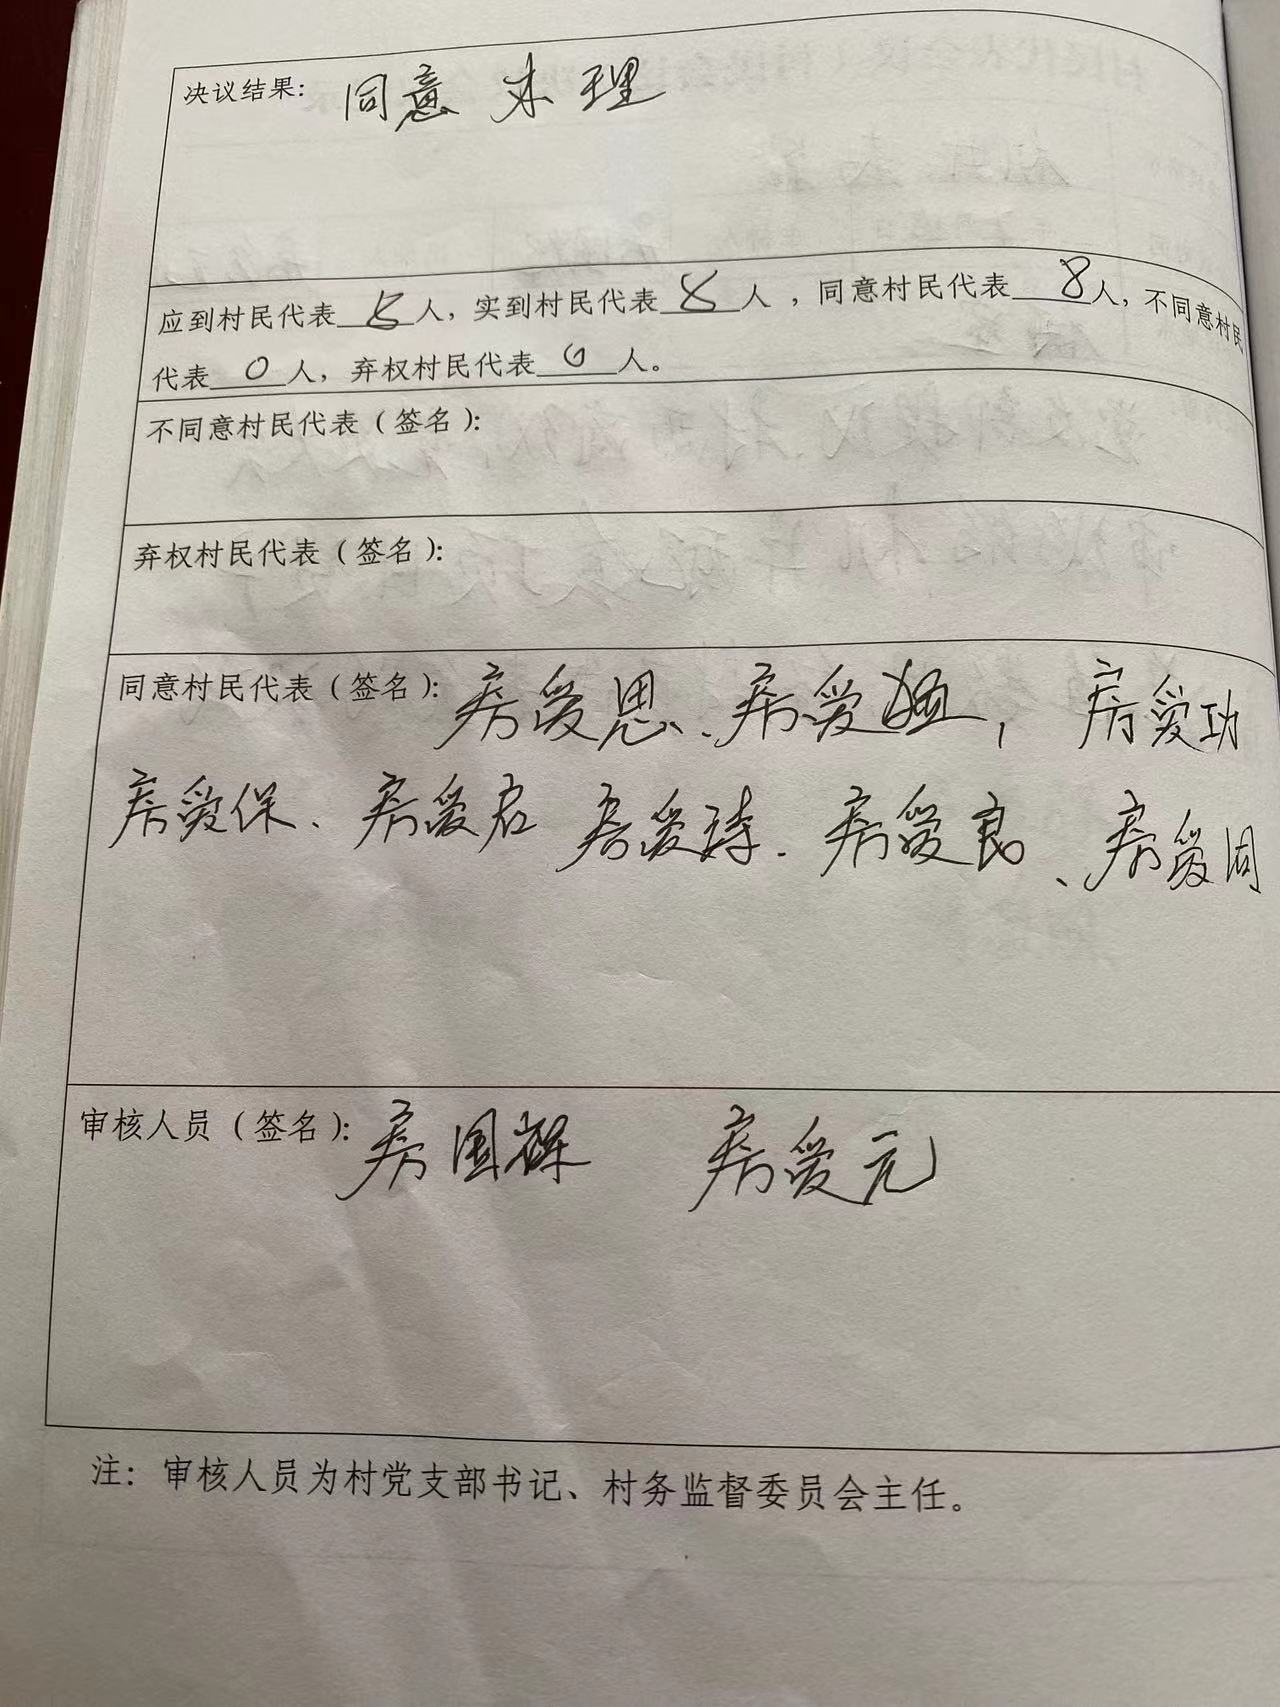 决议结果: 同意 办理
应到村民代表 8 人, 实到村民代表 8 人, 同意村民代表 8 人, 不同意村民
代表 0 人, 弃权村民代表 0 人。
不同意村民代表 (签名):
弃权村民代表 (签名):
同意村民代表 (签名): 房爱思、房爱, 房爱功
房爱保、房爱君 房爱 . 房爱良、房爱同
审核人员 (签名): 房国辉 房爱元
注: 审核人员为村党支部书记、村务监督委员会主任。